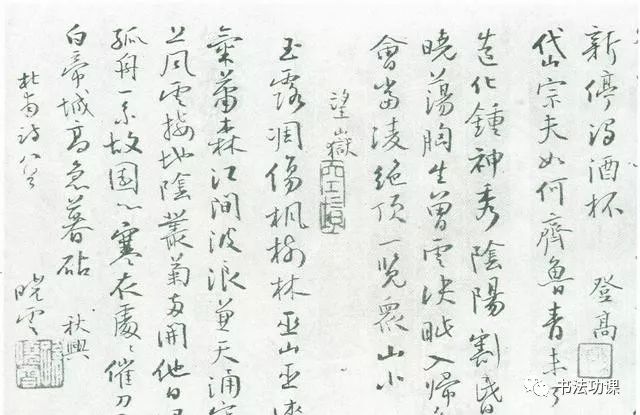 新停濁酒杯 登高
岱宗夫如何齊魯青未了
造化鍾神秀陰陽割昏
曉蕩胸生曾雲決眥入歸
會當凌絕頂一覽衆山小
望嶽
玉露凋傷楓樹林巫山巫
氣蕭森江間波浪兼天涌
上風雲接地陰叢菊兩開他日
孤舟一系故園心寒衣處處催刀
白帝城高急暮砧 秋興
杜甫詩八首
曉雲
书法功课